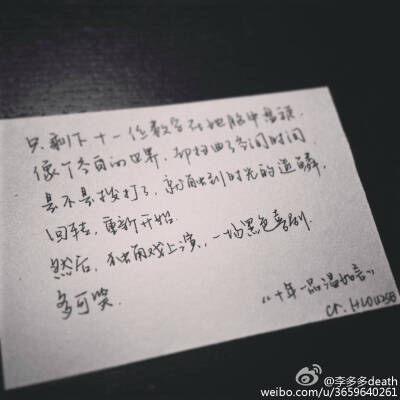 只剩下十一位数字在她脑中盘旋.
像个苍白的世界.却扭曲了空间时间
是不是拨打了,就能触到时光的逆鳞,
回转,重新开始.
然后,独角戏上演,一场黑色喜剧.
多可笑.
《十年一品温如言》
cr.
@李多多death
weibo.com/u/3659640261